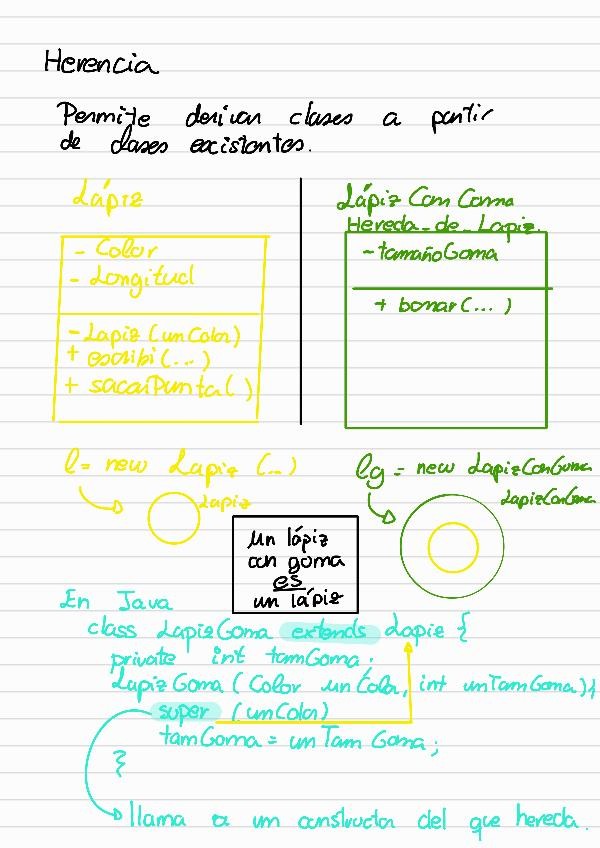 Herencia
Permite derivar clases a partir
de clases existentes.
Lápiz
- Color
- Longitud
- Lapiz (unColor)
+ escribi (...)
+ sacarPunta()
Lápiz Con Goma
Hereda_de_Lapiz.
- tamañoGoma
+ borrar (...)
l = new Lapiz (...)
Lapiz
lg = new LapizConGoma
LapizConGoma
un lápiz
con goma
es
un lápiz
En Java
class LapizGoma extends Lapiz {
private int tamGoma;
LapizGoma (Color unColor, int unTamGoma) {
super (unColor)
tamGoma = unTamGoma;
}
llama a un constructor del que hereda.